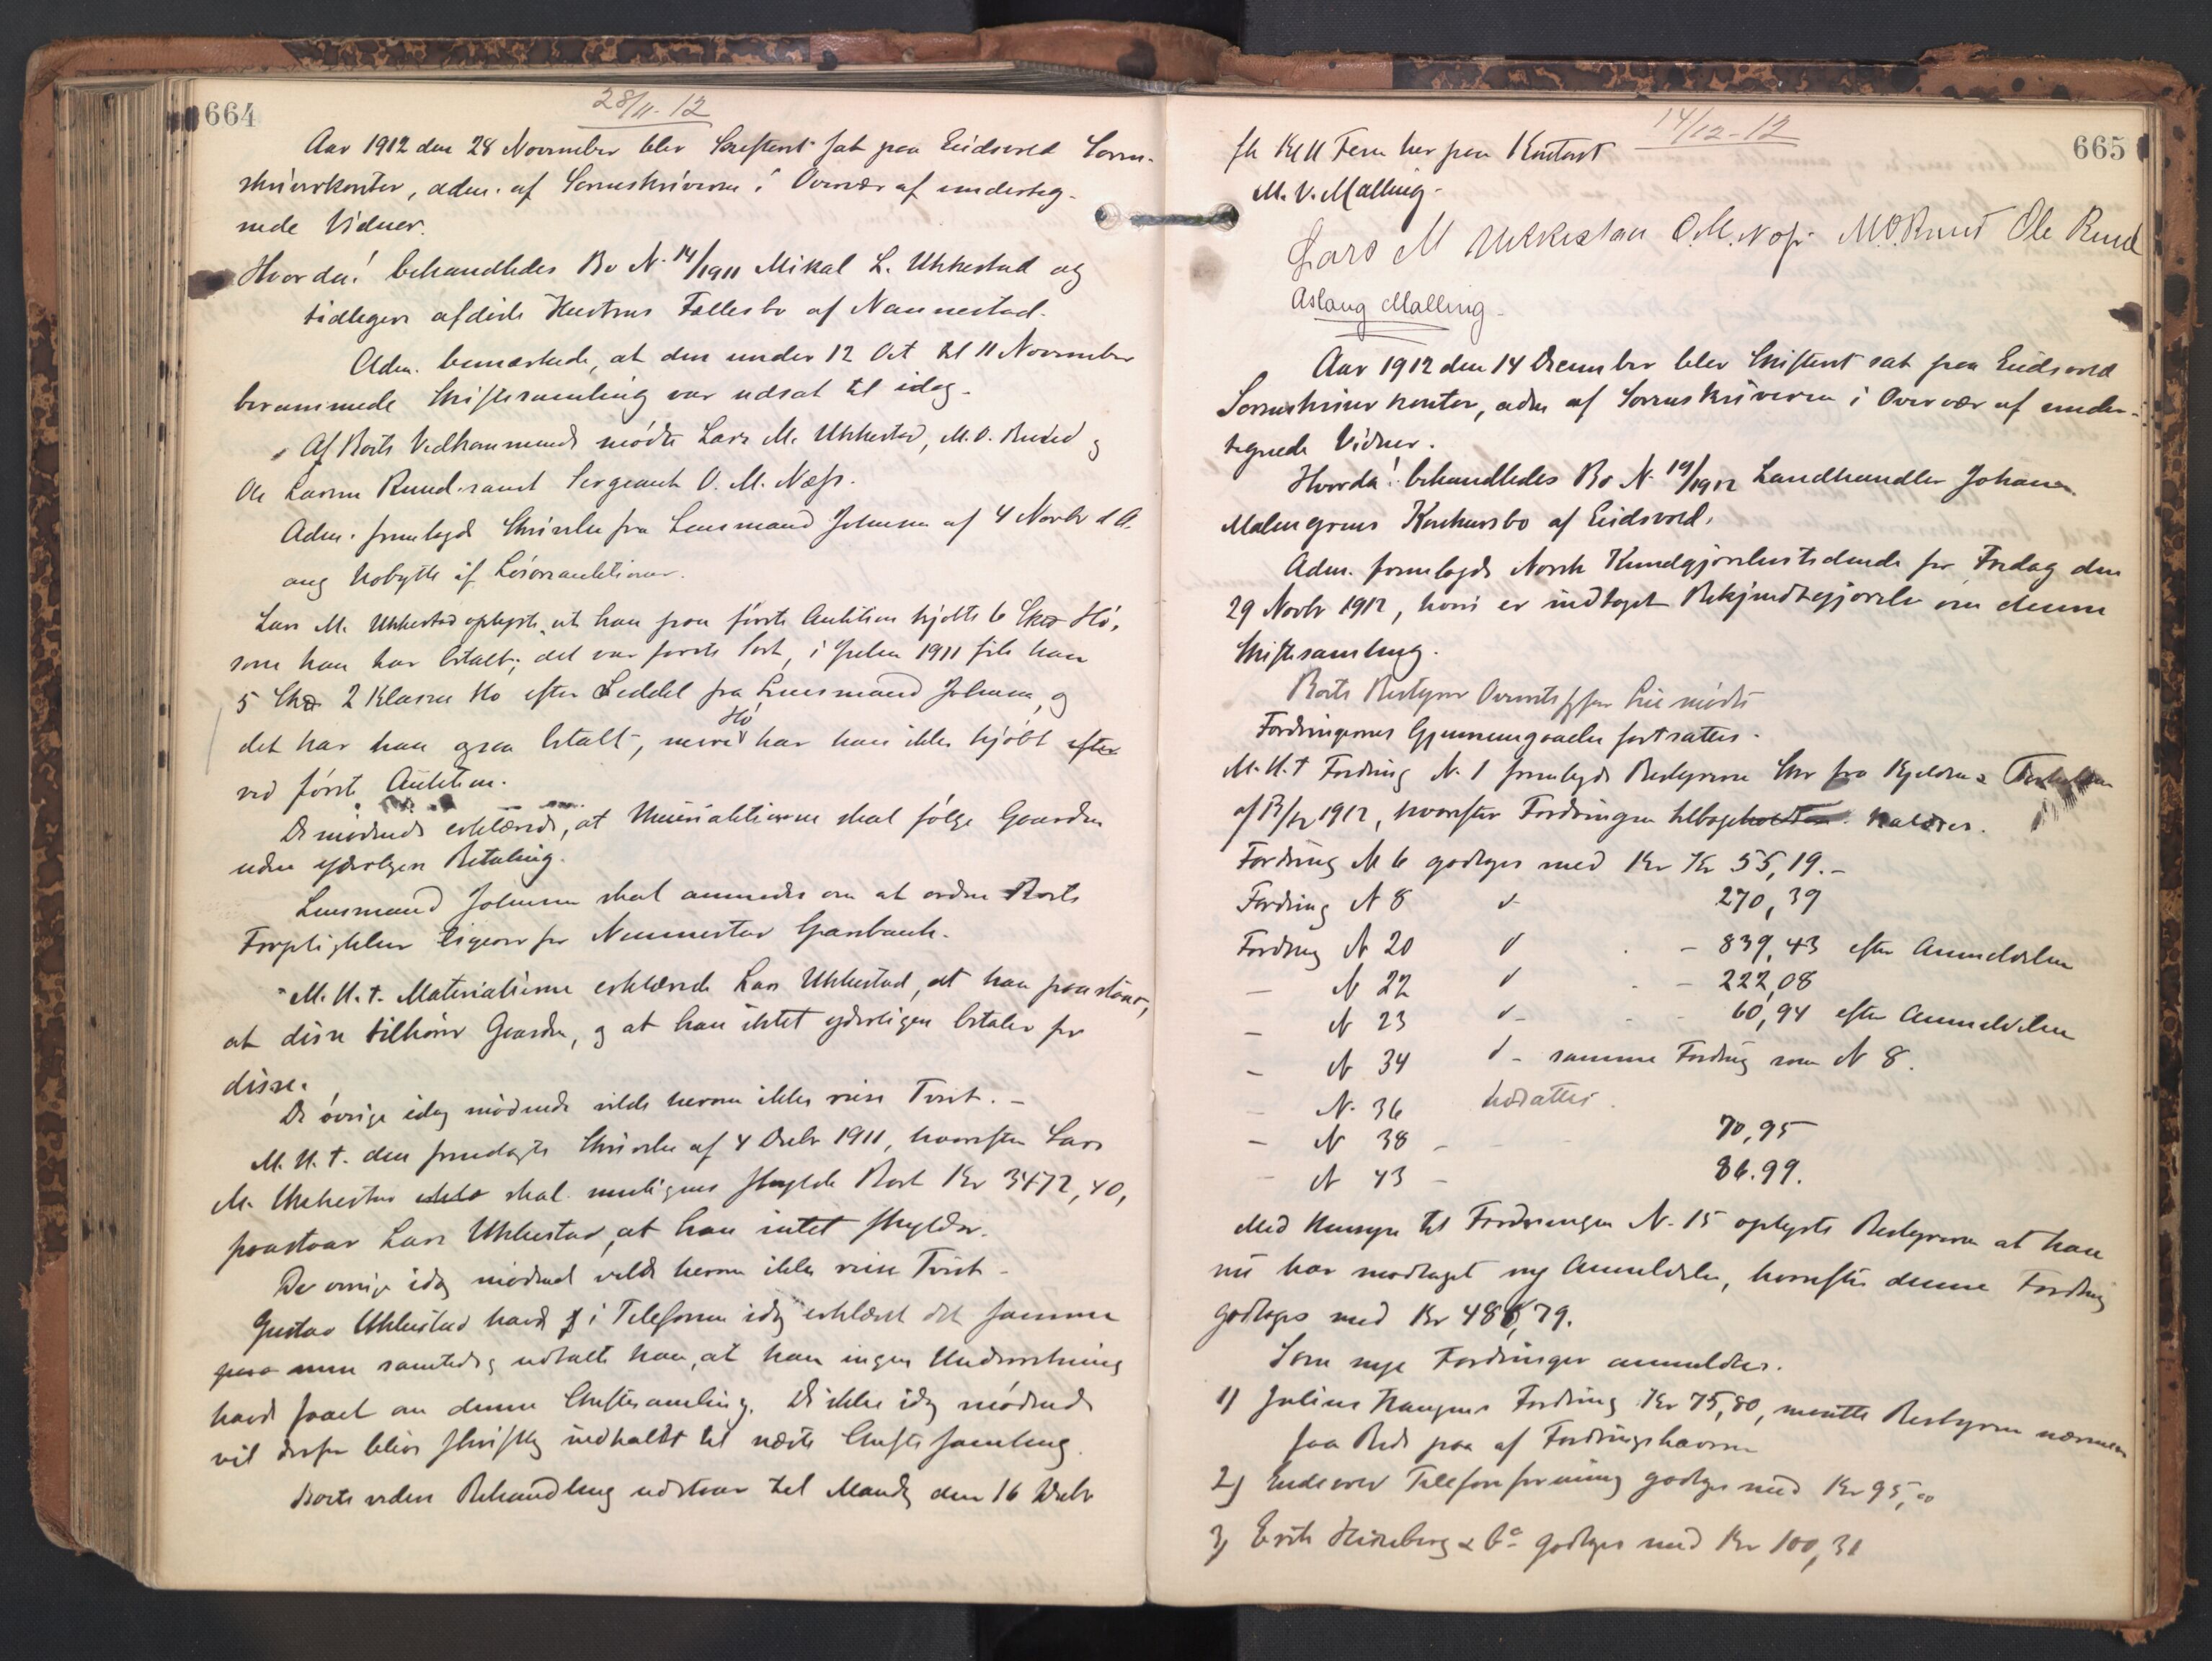 664
28/11-12
Aar 1912 den 28 November blev Skifteret sat paa Eidsvold Soren-
skriverkontor, adm. af Sorenskriveren i Overvær af underteg-
nede Vidner.
Hvorda! behandledes Bo N. 14/1911 Mikal L. Ukkestad og
tidligere afdøde Hustrus Fællesbo af Nannestad.
Adm. bemærkede, at den under 12 Oct til 11 November
berammede Skiftesamling var udsat til idag.
Af Boets Vedkommende mødte Lars M. Ukkestad, M. O. Ruud og
Ole Larsen Ruud samt Sergeant O. M. Næss.
Adm. fremlagde Skrivelse fra Lensmand Johnsen af 4 Novbr d. A.
ang Udbytte af Løsøreauktioner.
Lars M. Ukkestad oplyste, at han paa første Auktion kjøbte 6 Skd Hø,
som han har betalt; det var første Sort, i Julen 1911 fik han
5 Skd 2 Klasses Hø efter Seddel fra Lensmand Johnsen, og
det har han ogsaa betalt, mere Hø har han ikke kjøbt efter
ved første Auktion.
De mødende erklærede, at Materialierne skal følge Gaarden
uden yderligere Betaling.
Lensmand Johnsen skal anmodes om at ordne Boets
Forpligtelser ligeover for Nannestad Sparebank.
M. H. t. Materialierne erklærede Lars Ukkestad, at han paastaar,
at disse tilhører Gaarden, og at han intet yderligere betaler for
disse.
De øvrige idag mødende vilde herom ikke reise Tvist. -
M. H. t. den fremlagte Skrivelse af 4 Decbr 1911, hvorefter Lars
M. Ukkestad skal muligens skylde Boet Kr 3472,40,
paastaar Lars Ukkestad, at han intet skylder.
De øvrige idag mødende vilde herom ikke reise Tvist -
Gustav Ukkestad havde i Telefonen idag erklæret det samme
men samtidig udtalte han, at han ingen Underretning
havde faaet om denne Skiftesamling. De ikke idag mødende
vil derfor blive skriftlig indkaldt til næste Skiftesamling.
Boets videre Behandling udstaar til Mandag den 16 Decbr
665
14/12-12
fk Kl 11 Form her paa Kontoret
M. V. Malling.
Lars M Ukkestau O.M. Næss M.O.Ruud Ole Ruud
Aslaug Malling.
Aar 1912 den 14 December blev Skifteret sat paa Eidsvold
Sorenskriver kontor, adm af Sorenskriveren i Overvær af under-
tegnede Vidner.
Hvorda! behandledes Bo N. 19/1912 Landhandler Johan
Malmgrens Konkursbo af Eidsvold.
Adm. fremlagde Norsk Kundgjørelsestidende for Fredag den
29 Novbr 1912, hvori er indtaget Bekjendtgjørelse om denne
Skiftesamling.
Boets Bestyrer Overretssagfører Lie mødte
Fordringernes Gjennemgaaelse fortsattes.
M. H. t Fordring N. 1 fremlagde Bestyreren Skr fra Kjeldsen &
af 13/12 1912, hvorefter Fordringen tilbageholdtes. kaldes.
Fordring N 6 godtages med Kr Kr 55,19.-
Fordring N 8 d- 270,39
Fordring N 20 d - 839,43 efter Anmeldelsen
— N 22 d - 222,08
— N 23 d- - 60,94 efter Anmeldelsen
— N 34 d- samme Fordring som N 8.
— N. 36 udsættes.
— N 38 - 70,95
— N 43 - 86.99.
Med Hensyn til Fordringen N. 15 oplyste Bestyreren at han
nu har modtaget ny Anmeldelse, hvorefter denne Fordring
godtages med Kr 486,79.
Som nye Fordringer anmeldtes.
1) Julius Haugens Fordring Kr 75,80, maatte Bestyreren nærmere
faa Rede paa af Fordringshaveren
2) Eidsvold Telefonforening godtages med Kr 95,00
3) Erik Heineberg & Co godtages med Kr 100,31